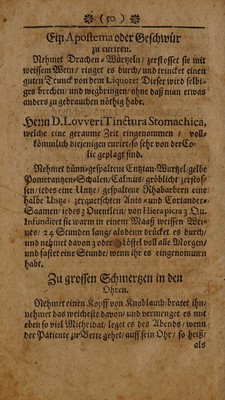 ( 50. )
Ein Apostema oder Geschwür
zu curiren.
Nehmet Drachen-Würtzeln / zerstosset sie mit
weissem Wein / ringet es durch / und trincket einen
guten Trunck von dem Liquore: Dieser wird selbi-
ges brechen / und wegbringen / ohne daß man etwas
anders zu gebrauchen nöthig habe.
Herrn D. Lovveri Tinctura Stomachica,
welche eine geraume Zeit eingenommen / voll-
kömmlich diejenigen curirt / so sehr von der Co-
lic geplagt sind.
Nehmet dünn-gespaltene Entzian-Wurtzel / gelbe
Pomerantzen-Schalen / Calmus / gröblicht zerstos-
sen / iedes eine Untze / gespaltene Rhabarbern eine
halbe Untze / zerquetschten Anis- und Coriander-
Saamen / iedes 2 Quentlein / von Hierapicra 3 Qu.
Infundiret sie warm in einem Maaß weissen Wei-
nes / 24 Stunden lang / alsdenn drücket es durch /
und nehmet davon 3 oder Löffel voll alle Morgen /
und fastet eine Stunde / wenn ihr es eingenommen
habt.
Zu grossen Schmertzen in den
Ohren.
Nehmet einen Kopff von Knoblauch / bratet ihn /
nehmet das weicheste davon / und vermenget es mit
eben so viel Mithridat / leget es des Abends / wenn
der Patiente zu Bette gehet / auff sein Ohr / so heiß /
als